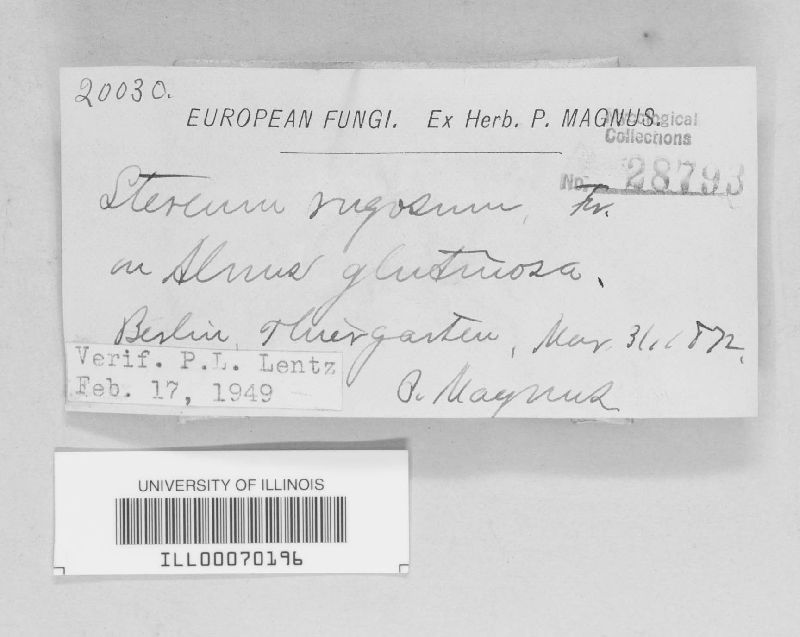 20030.
EUROPEAN FUNGI. Ex Herb. P. MAGNUS.
Mycological
Collections
No. 28793
Stereum rugosum, Fr.
on Alnus glutinosa.
Berlin, Thiergarten, Mar. 31, 1872.
Verif. P.L. Lentz
Feb. 17, 1949
P. Magnus
UNIVERSITY OF ILLINOIS
ILL00070196